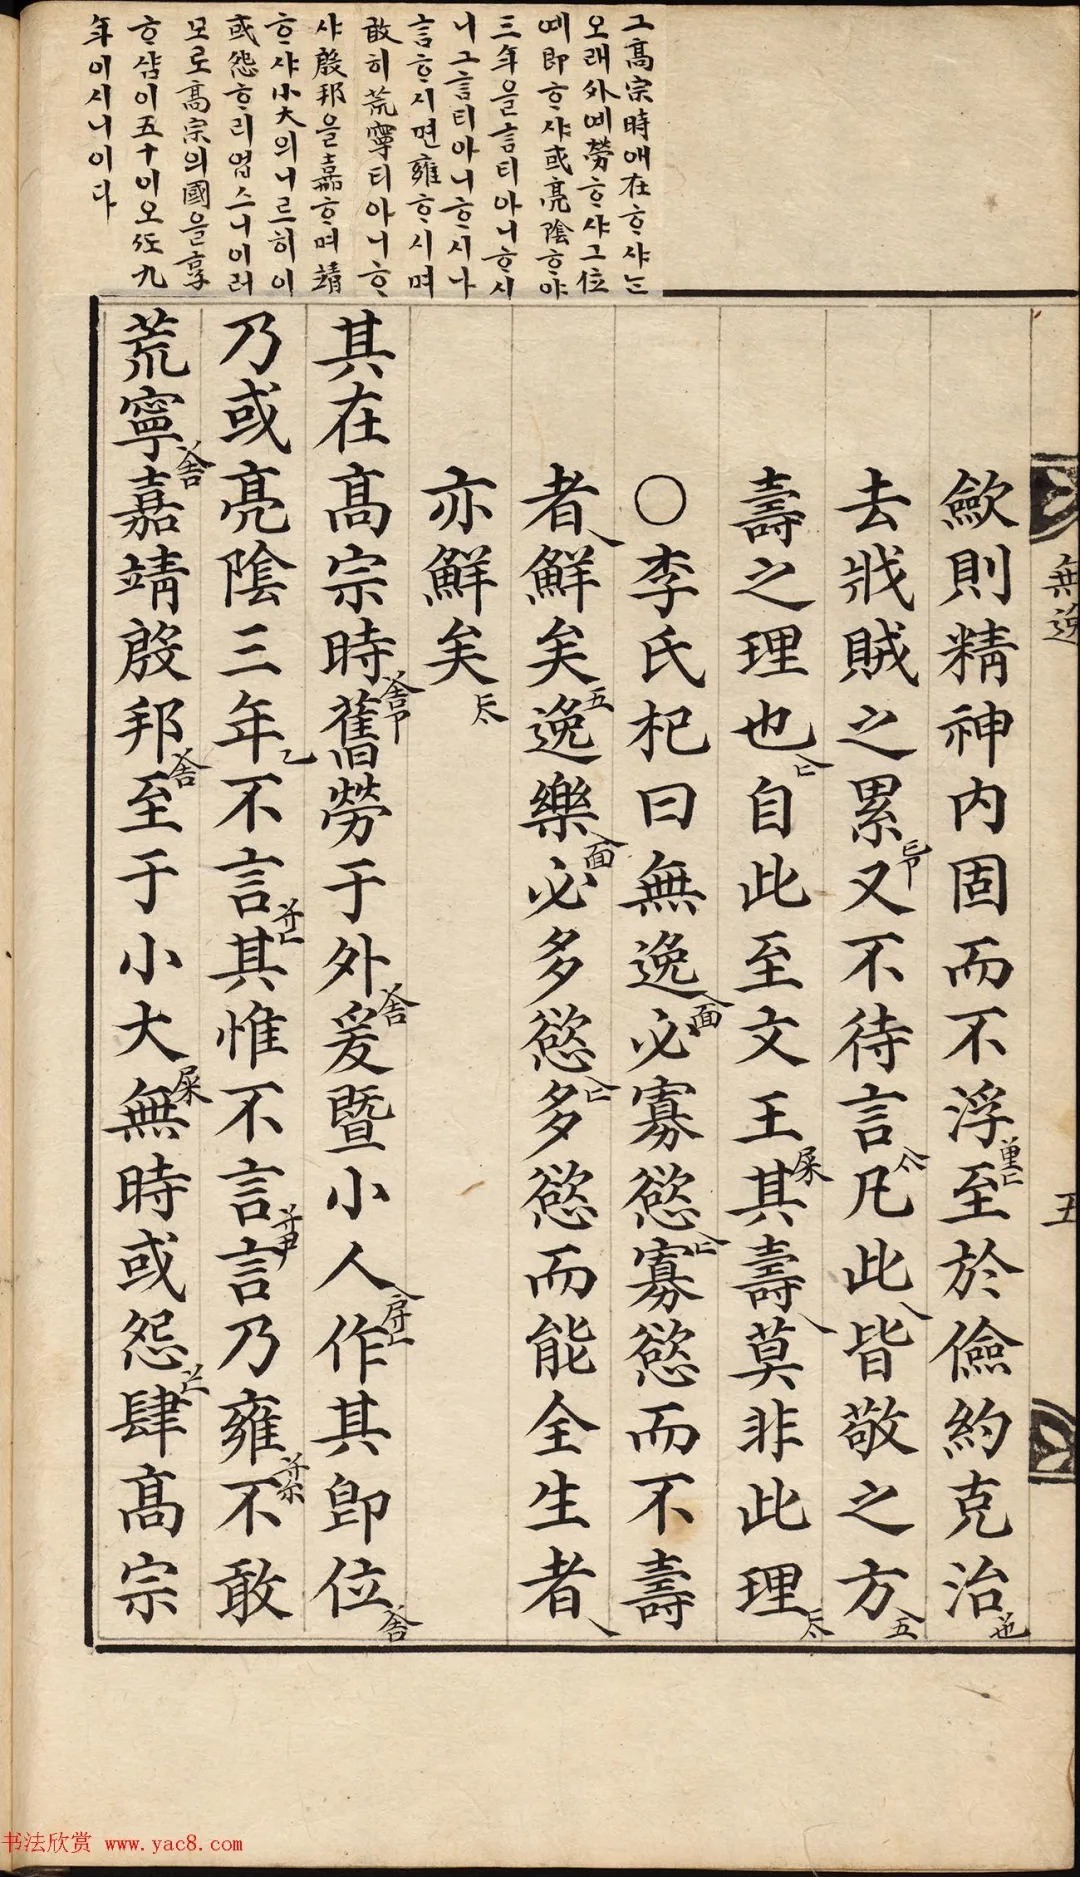 그高宗時애在ᄒᆞ샤ᄂᆞᆫ
오래外예勞ᄒᆞ샤그位
예即ᄒᆞ샤或亮陰ᄒᆞ야
三年을言티아니ᄒᆞ시
니그言티아니ᄒᆞ시나
言ᄒᆞ시면雍ᄒᆞ시며
敢히荒寧티아니ᄒᆞ
샤殷邦을嘉ᄒᆞ며靖
ᄒᆞ샤小大의니르히이
或怨ᄒᆞ리업스니이러
모로高宗의國을享
ᄒᆞ샴이五十이오九
年이시니이다
無逸
五
歛則精神内固而不浮至於儉約克治
去戕賊之累又不待言凡此皆敬之方
壽之理也自此至文王其壽莫非此理
○李氏杞曰無逸必寡慾寡慾而不壽
者鮮矣逸樂必多慾多慾而能全生者
亦鮮矣
其在髙宗時舊勞于外爰曁小人作其卽位
乃或亮陰三年不言其惟不言言乃雍不敢
荒寧嘉靖殷邦至于小大無時或怨肆髙宗
书法欣赏 www.yac8.com